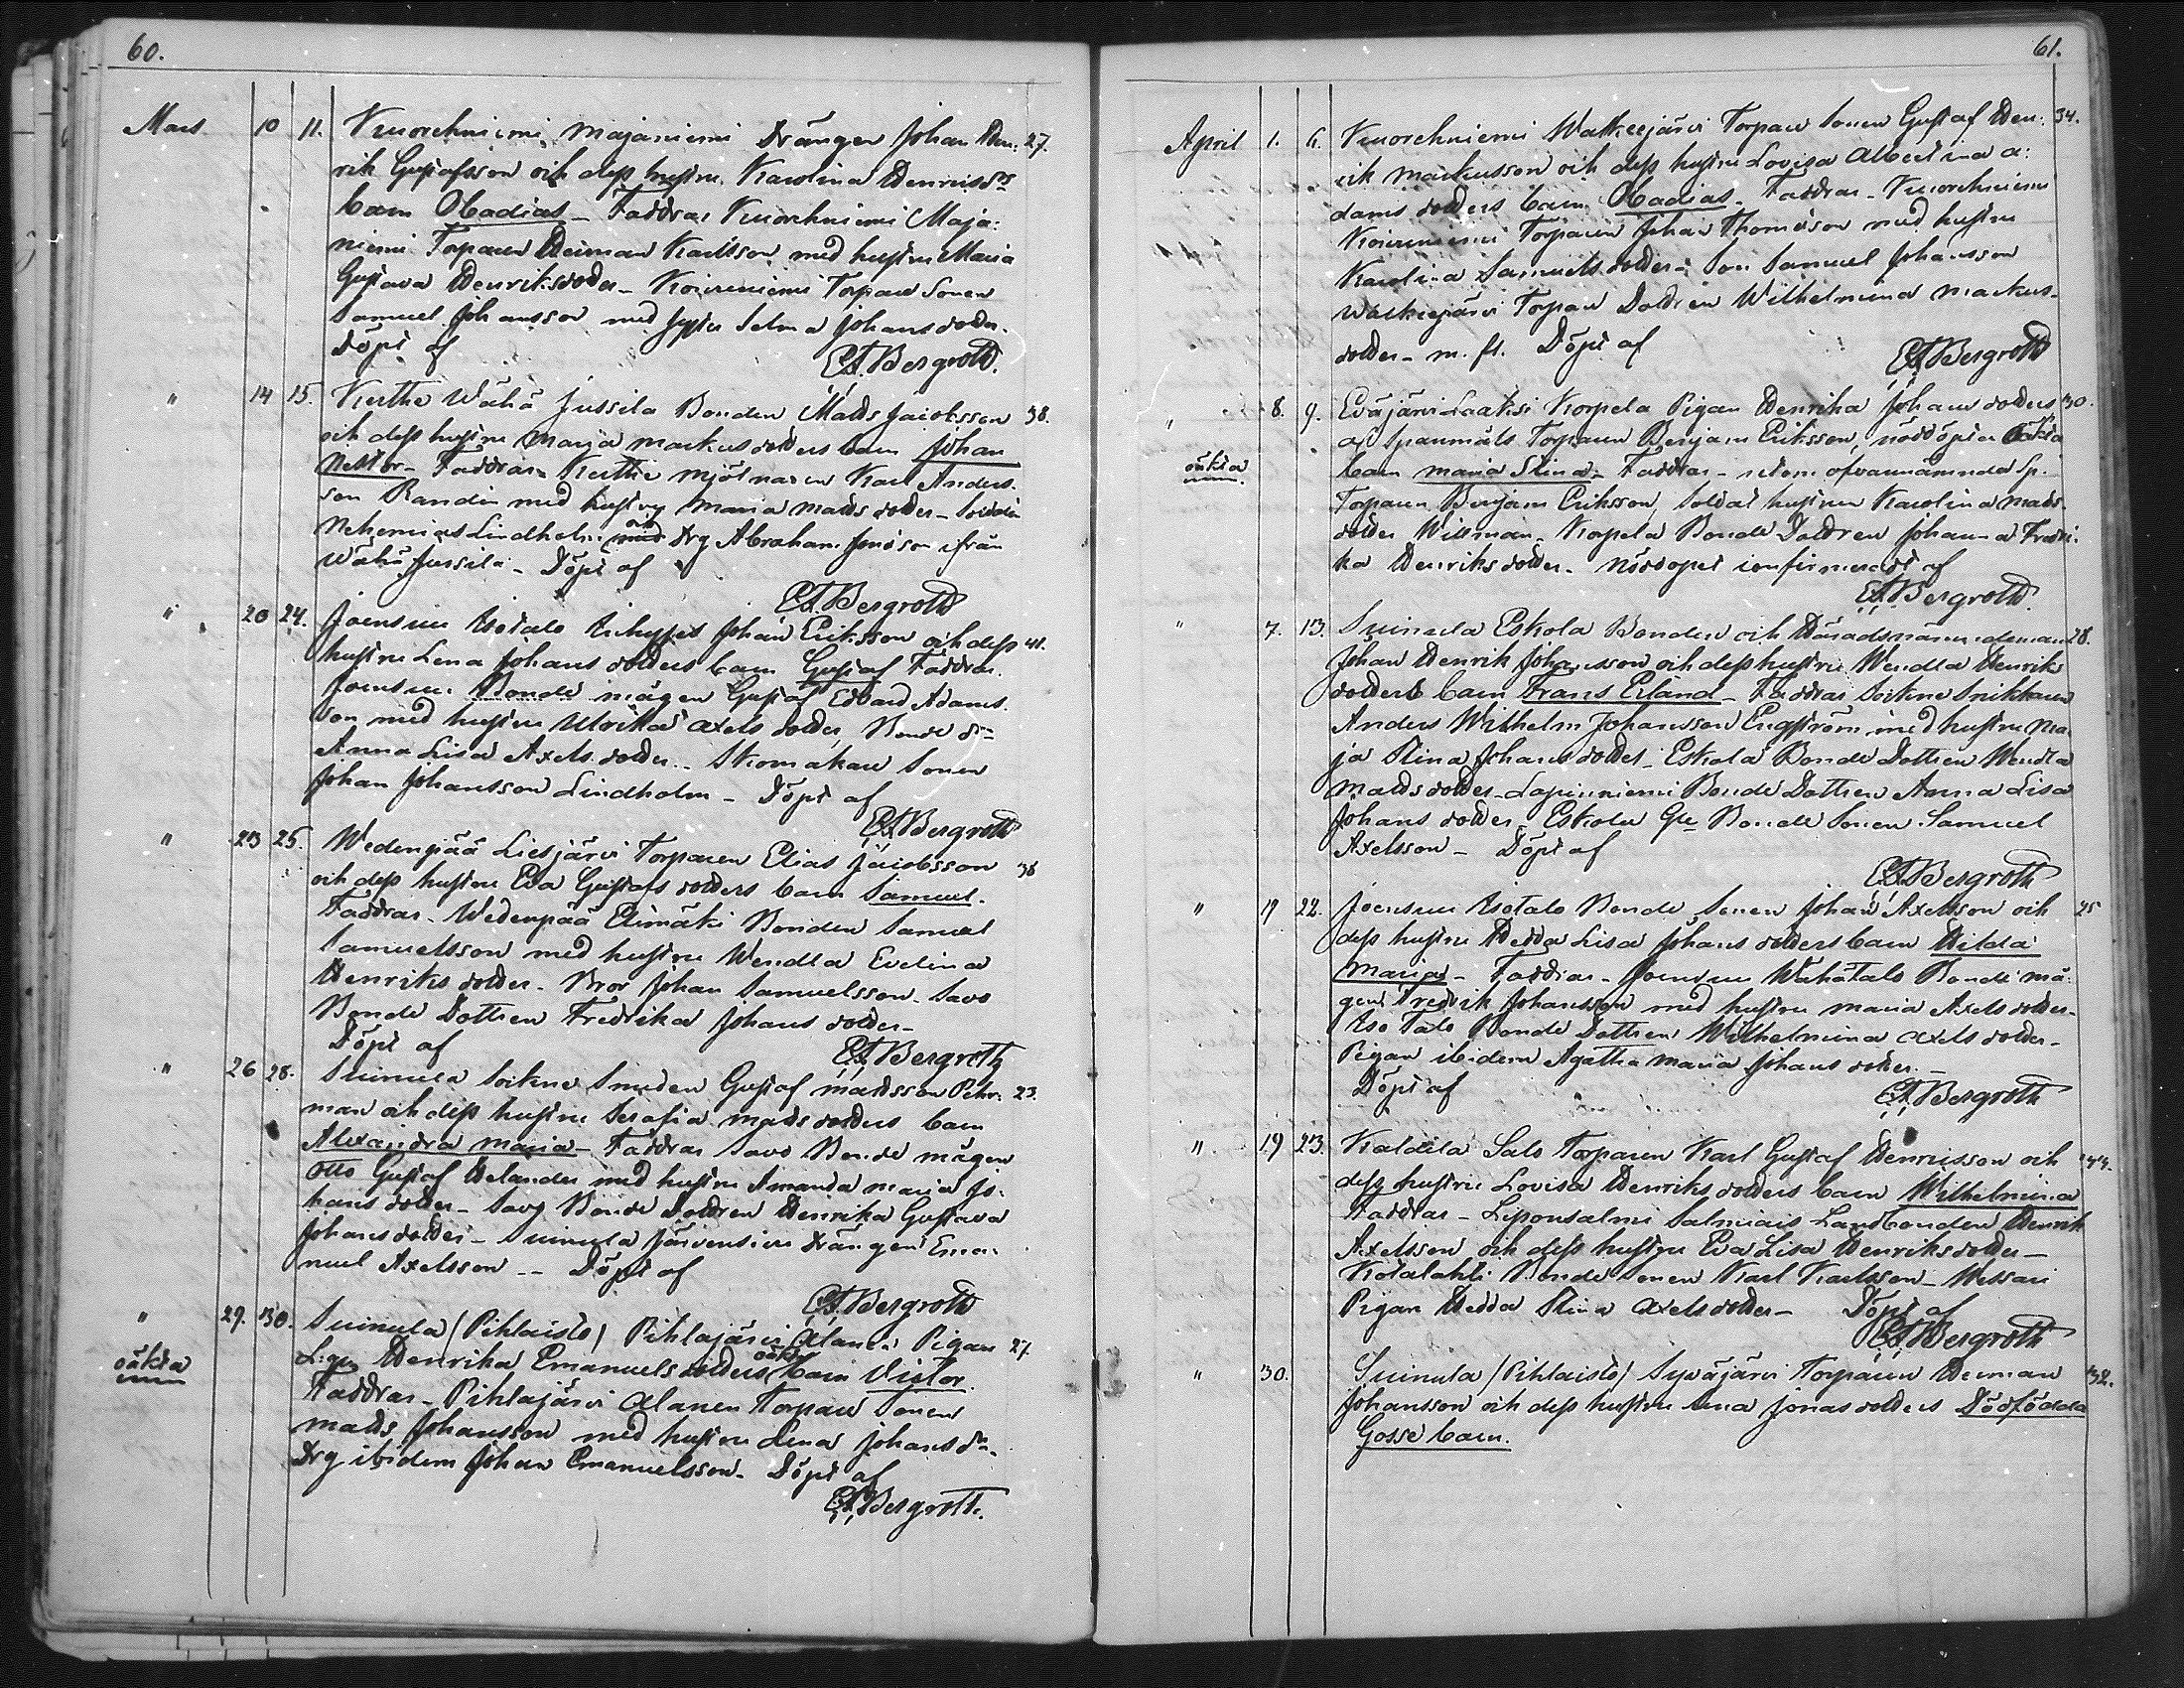 60.
Mars 10 11. Kuorehniemi, Majaniemi Drängen Johan Hen- 27.
rik Gustafsson och dess hustru Karolina Henriksdrs
barn Obadias – Faddrar Kuorehniemi Maja-
niemi Torparen Herman Karlsson med hustru Maria
Gustava Henriksdotter – Koivuniemi Torpare Sonen
Samuel Johansson med syster Selma Johansdotter.
Döpt af
E.A.Bergroth.
" 14 15. Kuthe Wähä Jussila Bonden Matts Jacobsson 38.
och dess hustru Maija Markusdotters barn Johan
Nestor – Faddrar Kuthe mjölnaren Karl Anders-
son Randin med hustru Maria Mattsdotter –
Nehemias Lindholm och drg Abraham Jonsson ifrån
Wähä Jussila – Döpt af
E.A.Bergroth
" 20 24. Joensuu Isotalo Inhyses Johan Eriksson och dess 41.
hustru Lena Johansdotters barn Gustaf Faddrar.
Joensuu Bonde mågen Gustaf Edvard Adams-
son med hustru Ulrika Axelsdotter, Bonde drn
Anna Lisa Axelsdotter – Skomakare Sonen
Johan Johansson Lindholm – Döpt af
E.A.Bergroth
" 23 25. Wedenpää Liesjärvi Torparen Elias Jacobsson 38
och dess hustru Eva Gustafsdotters barn Samuel.
Faddrar – Wedenpää Elimäki Bonden Samuel
Samuelsson med hustru Wendla Evelina
Henriksdotter – Bror Johan Samuelsson – Savo
Bonde Dottren Fredrika Johansdotter –
Döpt af
E.A.Bergroth
" 26 28. Suinula Sockne Smeden Gustaf Mattsson Pehr- 23.
man och dess hustru Serafia Mattsdotters barn
Alexandra Maria – Faddrar Savo Bonde mågen
Otto Gustaf Helander med hustru Amanda Maria Jo-
hansdotter – Savo Bonde Dottren Henrika Gustava
Johansdotter – Suinula Järvensivu Drängen Ema-
nuel Axelsson –– Döpt af
E.A.Bergroth
" 29. 30. Suinula (Pihlaisto) Pihlajärvi Alanen Pigan 27.
oäkta
Henrika Emanuelsdotters oäkta barn Victor.
Faddrar – Pihlajärvi Alanen Torpare Sonen
Matts Johansson med hustru Lena Johansdr.
Drg ibidem Johan Emanuelsson – Döpt af
E.A.Bergroth.
61.
April 1. 6. Kuorehniemi Walkeejärvi Torpare Sonen Gustaf Hen- 34.
rik Markusson och dess hustru Lovisa Albertina A-
damsdotters barn Obadias – Faddrar – Kuorehniemi
Koivuniemi Torparen Johan Thomasson med hustru
Karolina Samuelsdotter – Son Samuel Johansson
Walkeejärvi Torpare Dottren Wilhelmina Markus-
dotter – m. fl. Döpt af
E.A.Bergroth
" 8. 9. Eväjärvi Laaksi Korpela Pigan Henrika Johansdotters 30.
af Spanmåls Torparen Benjam Eriksson, nöddöpta oäkta
oäkta
barn Maria Stina – Faddrar – ofvannämnda Sp.
Torparen Benjam Eriksson, Soldat hustrun Karolina Matts-
dotter Willman – Korpela Bonde Dottren Johanna Fredri-
ka Henriksdotter – nöddopet confirmeradt af
E.A.Bergroth.
" 7. 13. Suinula Eskola Bonden och Häradsnämndeman 28.
Johan Henrik Johansson och dess hustru Wendla Henriks
dotters barn Frans Erland – Faddrar Sockne Snickaren
Anders Wilhelm Johansson Engström med hustru Ma-
ja Stina Johansdotter – Eskola Bonde Dottren Wendla
Mattsdotter – Lapinniemi Bonde Dottren Anna Lisa
Johansdotter – Eskola Gle Bonde Sonen Samuel
Axelsson – Döpt af
E.A.Bergroth
" 19 22. Joensuu Isotalo Bonde Sonen Johan Axelsson och 25
dess hustru Hedda Lisa Johansdotters barn Hilda
Maria – Faddrar – Joensuu Wähätalo Bonde må-
gen Fredrik Johansson med hustru Maria Axelsdotter –
Iso Talo Bonde Dottren Wilhelmina Axelsdotter –
Pigan ibidem Agatha Maria Johansdotter –
Döpt af
E.A.Bergroth
" 19 23. Kaldila Salo Torparen Karl Gustaf Henriksson och 44.
dess hustru Lovisa Henriksdotters barn Wilhelmina
Faddrar – Liponsalmi Salmiais Landbonden Henrik
Axelsson och dess hustru Eva Lisa Henriksdotter –
Kotalahti Bonde Sonen Karl Karlsson – Wessari
Pigan Hedda Stina Axelsdotter – Döpt af
E.A.Bergroth
" 30. Suinula (Pihlaisto) Syväjärvi Torparen Herman 32.
Johansson och dess hustru Jonasdotters Dödfödda
Gosse barn.